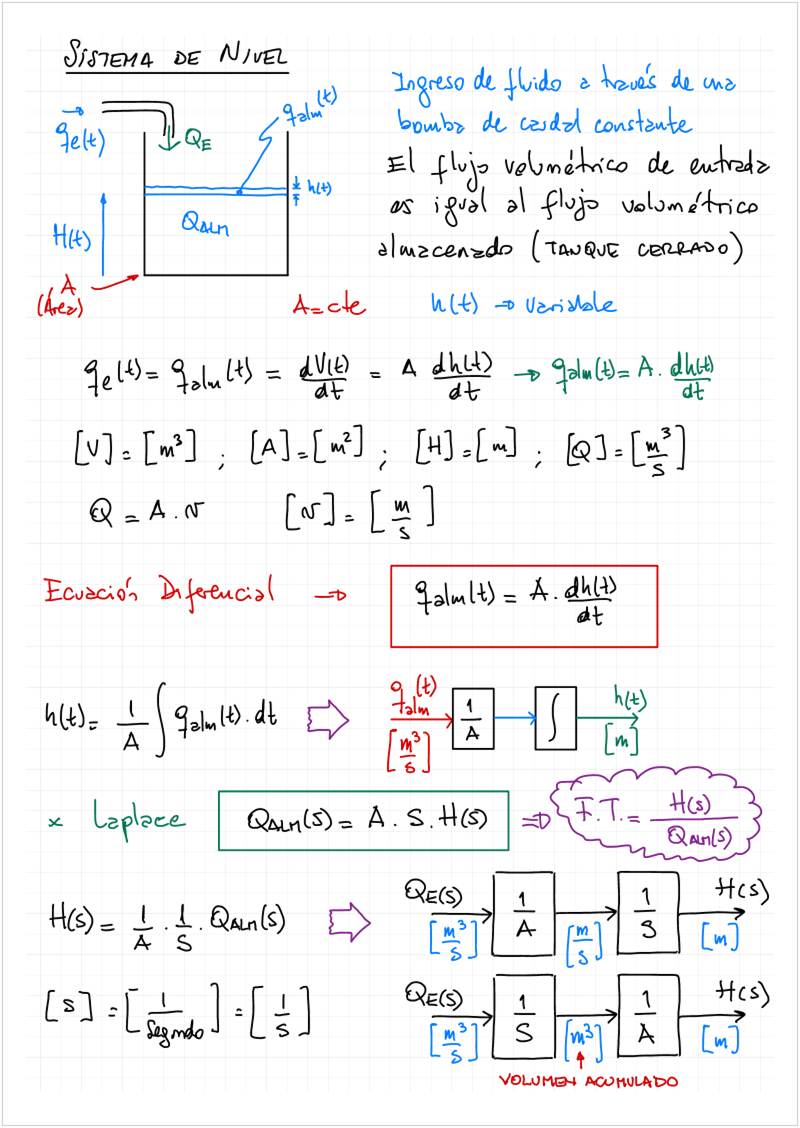 SISTEMA DE NIVEL
qe(t)
QE
qalm(t)
h(t)
H(t)
QALM
A
(Área)
Ingreso de fluido a través de una
bomba de caudal constante
El flujo volumétrico de entrada
es igual al flujo volumétrico
almacenado (TANQUE CERRADO)
A = cte h(t) → variable
qe(t) = qalm(t) = dV(t)/dt = A dh(t)/dt → qalm(t) = A . dh(t)/dt
[V] = [m³] ; [A] = [m²] ; [H] = [m] ; [Q] = [m³/s]
Q = A . v [v] = [m/s]
Ecuación Diferencial → qalm(t) = A . dh(t)/dt
h(t) = 1/A ∫ qalm(t) . dt ⇨ qalm(t) [m³/s] 1/A ∫ h(t) [m]
x Laplace QALM(s) = A . S . H(s) ⇒ F.T. = H(s)/QALM(s)
H(s) = 1/A . 1/S . QALM(s) ⇨ QE(s) [m³/s] 1/A [m/s] 1/S H(s) [m]
[s] = [1/segundo] = [1/s] QE(s) [m³/s] 1/S [m³] 1/A H(s) [m]
VOLUMEN ACUMULADO